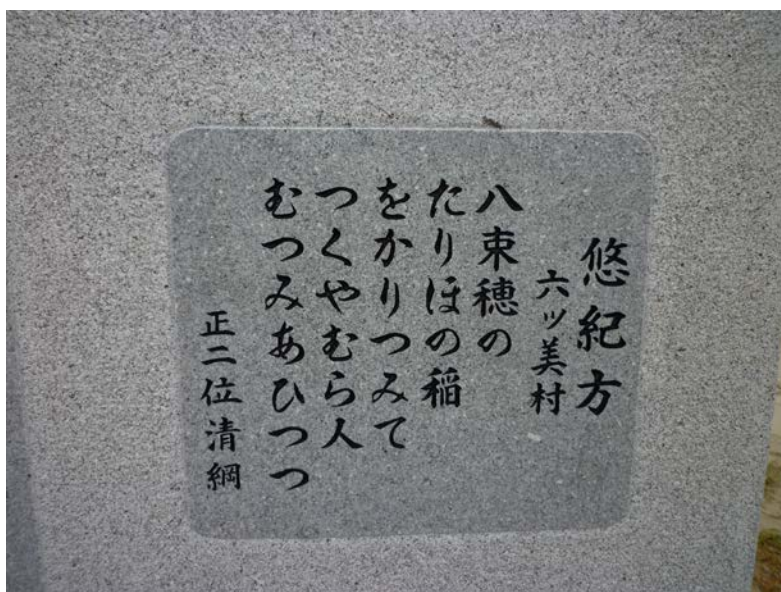 悠紀方
六ッ美村
八束穂の
たりほの稲
をかりつみて
つくやむら人
むつみあひつつ
正二位清綱